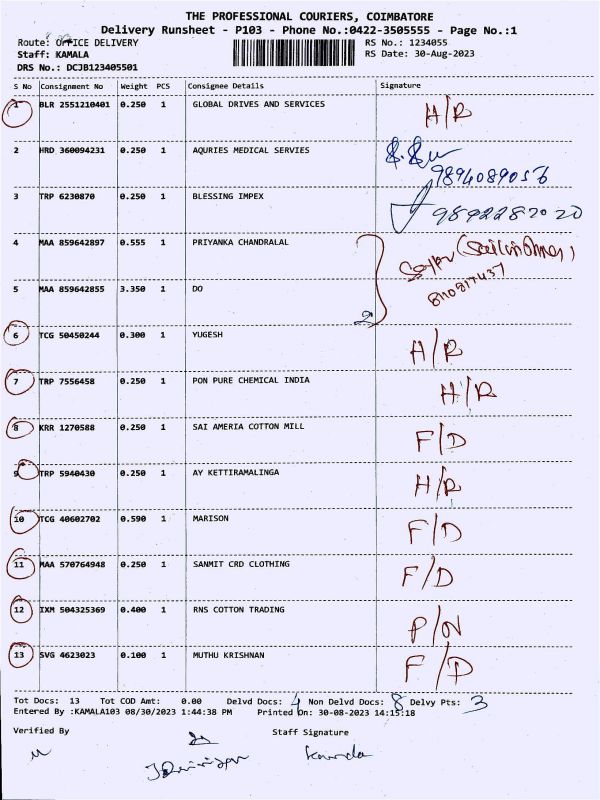 THE PROFESSIONAL COURIERS, COIMBATORE
Delivery Runsheet - P103 - Phone No.:0422-3505555 - Page No.:1
Route: OFFICE DELIVERY RS No.: 1234055
Staff: KAMALA RS Date: 30-Aug-2023
DRS No.: DCJB123405501
S No Consignment No Weight PCS Consignee Details Signature
1 BLR 2551210401 0.250 1 GLOBAL DRIVES AND SERVICES H/R
2 HRD 360094231 0.250 1 AQURIES MEDICAL SERVIES
9894089056
3 TRP 6230870 0.250 1 BLESSING IMPEX 9892282020
4 MAA 859642897 0.555 1 PRIYANKA CHANDRALAL
5 MAA 859642855 3.350 1 DO
2
6 TCG 50450244 0.300 1 YUGESH H/R
7 TRP 7556458 0.250 1 PON PURE CHEMICAL INDIA H/R
8 KRR 1270588 0.250 1 SAI AMERIA COTTON MILL F/D
9 TRP 5940430 0.250 1 AY KETTIRAMALINGA H/R
10 TCG 40602702 0.590 1 MARISON F/D
11 MAA 570764948 0.250 1 SANMIT CRD CLOTHING F/D
12 IXM 504325369 0.400 1 RNS COTTON TRADING P/N
13 SVG 4623023 0.100 1 MUTHU KRISHNAN F/D
Tot Docs: 13 Tot COD Amt: 0.00 Delvd Docs: 4 Non Delvd Docs: 8 Delvy Pts: 3
Entered By :KAMALA103 08/30/2023 1:44:38 PM Printed On: 30-08-2023 14:15:18
Verified By Staff Signature